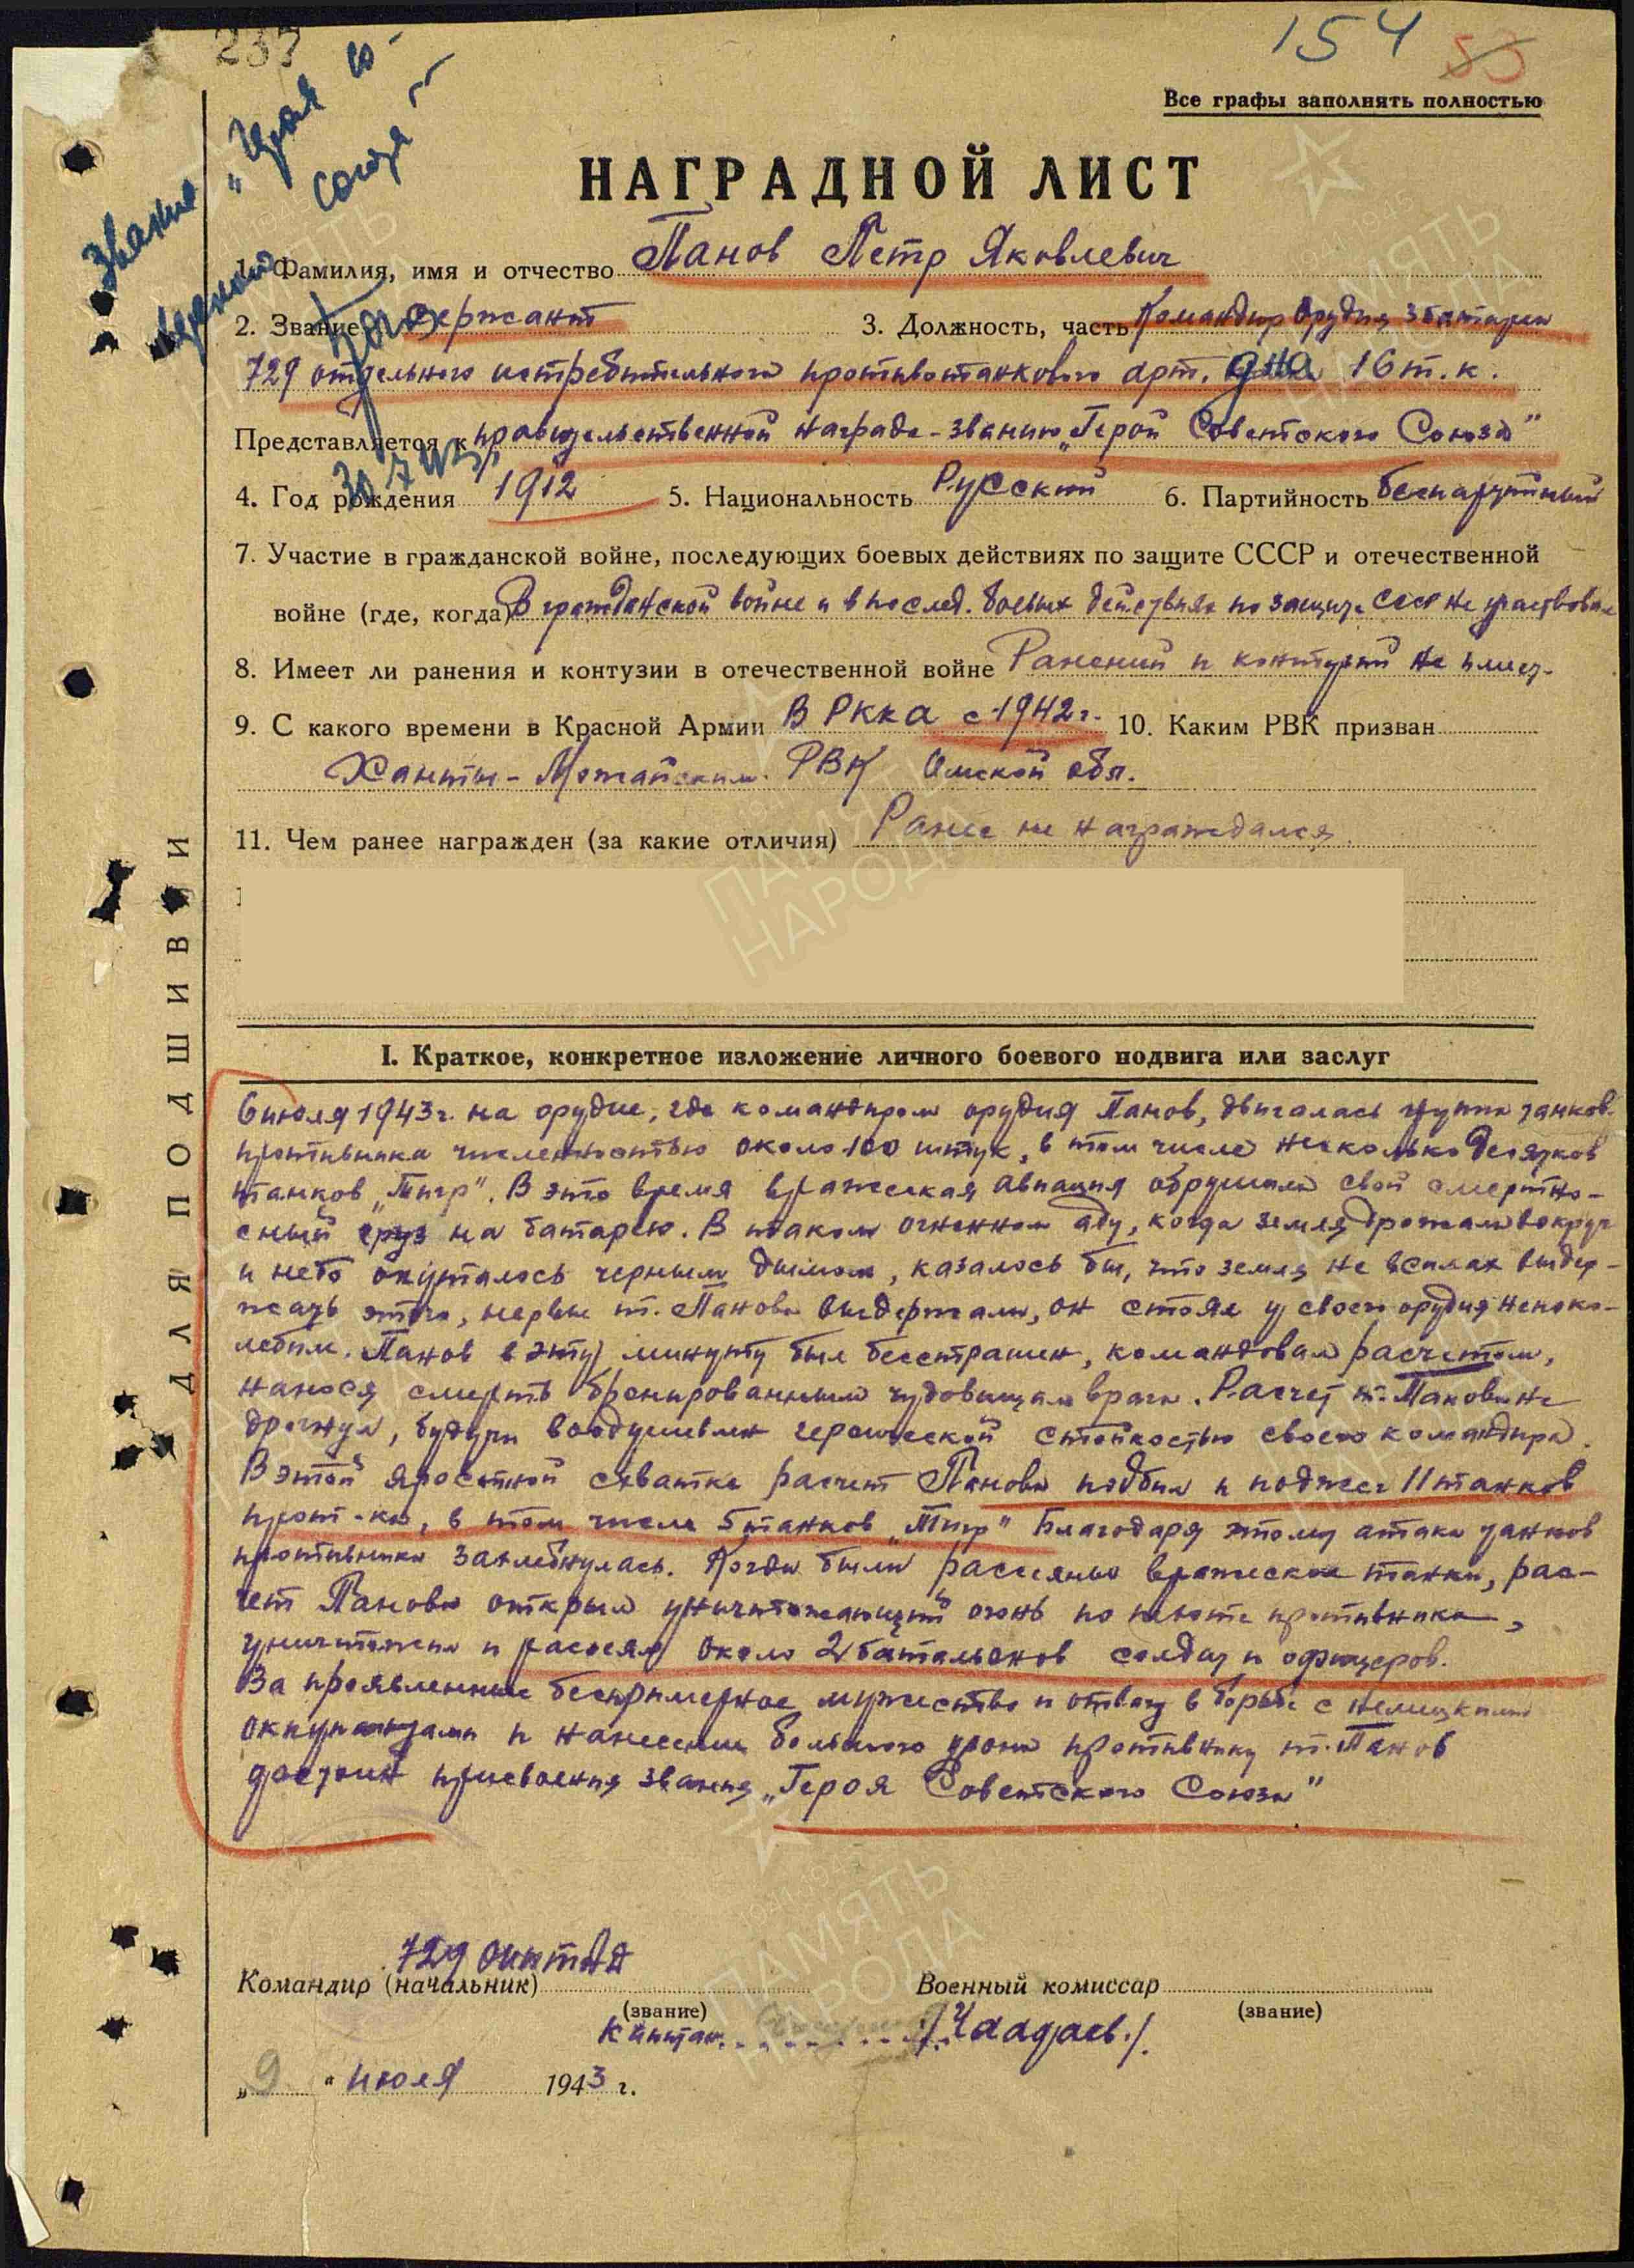 237
154 53
Звание „Героя
Советского
Союза"
30.7.43
Все графы заполнять полностью
НАГРАДНОЙ ЛИСТ
1. Фамилия, имя и отчество Панов Петр Яковлевич
2. Звание сержант 3. Должность, часть Командир орудия 3 батареи
729 отдельного истребительного противотанкового арт. д-на 16 т.к.
Представляется к правительственной награде - званию „Герой Советского Союза"
4. Год рождения 1912 5. Национальность Русский 6. Партийность беспартийный
7. Участие в гражданской войне, последующих боевых действиях по защите СССР и отечественной
войне (где, когда) В гражданской войне и в послед. боевых действиях по защите СССР не участвовал
8. Имеет ли ранения и контузии в отечественной войне Ранений и контузий не имеет.
9. С какого времени в Красной Армии В РККА с 1942 г. 10. Каким РВК призван
Ханты-Мансийским РВК Омской обл.
11. Чем ранее награжден (за какие отличия) Ранее не награждался.
ДЛЯ ПОДШИВКИ
I. Краткое, конкретное изложение личного боевого подвига или заслуг
6 июля 1943 г. на орудие, где командиром орудия Панов, двигалась группа танков
противника численностью около 100 штук, в том числе несколько десятков
танков „Тигр". В это время вражеская авиация обрушила свой смертно-
сный груз на батарею. В таком огненном аду, когда земля дрожала вокруг
и небо окуталось черным дымом, казалось бы, что земля не в силах выдер-
жать этого, нервы т. Панова выдержали, он стоял у своего орудия непоко-
лебим. Панов в эту минуту был бесстрашен, командовал расчетом,
нанося смерть бронированным чудовищам врага. Расчет т. Панова не
дрогнул, будучи воодушевлен героической стойкостью своего командира.
В этой яростной схватке расчет Панова подбил и поджег 11 танков
прот-ка, в том числе 5 танков „Тигр" Благодаря этому атака танков
противника захлебнулась. Когда были рассеяны вражеские танки, рас-
чет Панова открыл уничтожающий огонь по пехоте противника,
уничтожил и рассеял около 2 батальонов солдат и офицеров.
За проявленные беспримерное мужество и отвагу в борьбе с немецкими
оккупантами и нанесение большого урона противнику т. Панов
достоин присвоения звания „Героя Советского Союза"
729 ОИПТАД
Командир (начальник) Военный комиссар
(звание) (звание)
Капитан /Чаадаев./
„9" июля 1943 г.
ПАМЯТЬ
НАРОДА